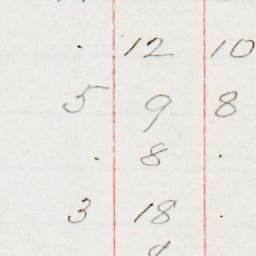 . 12 10
5 9 8
. 8 .
3 18 .